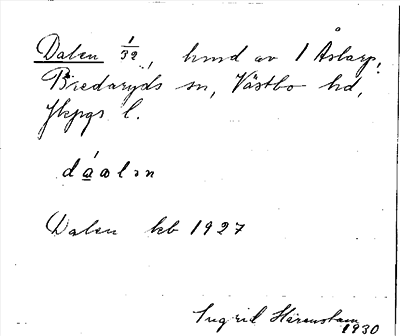 Dalen 1/32, hmd av 1 Åstarp,
Bredaryds sn, Västbo hd,
Jkpgs l.
dáalən
Dalen kb 1927
Ingrid Härenstam
1930